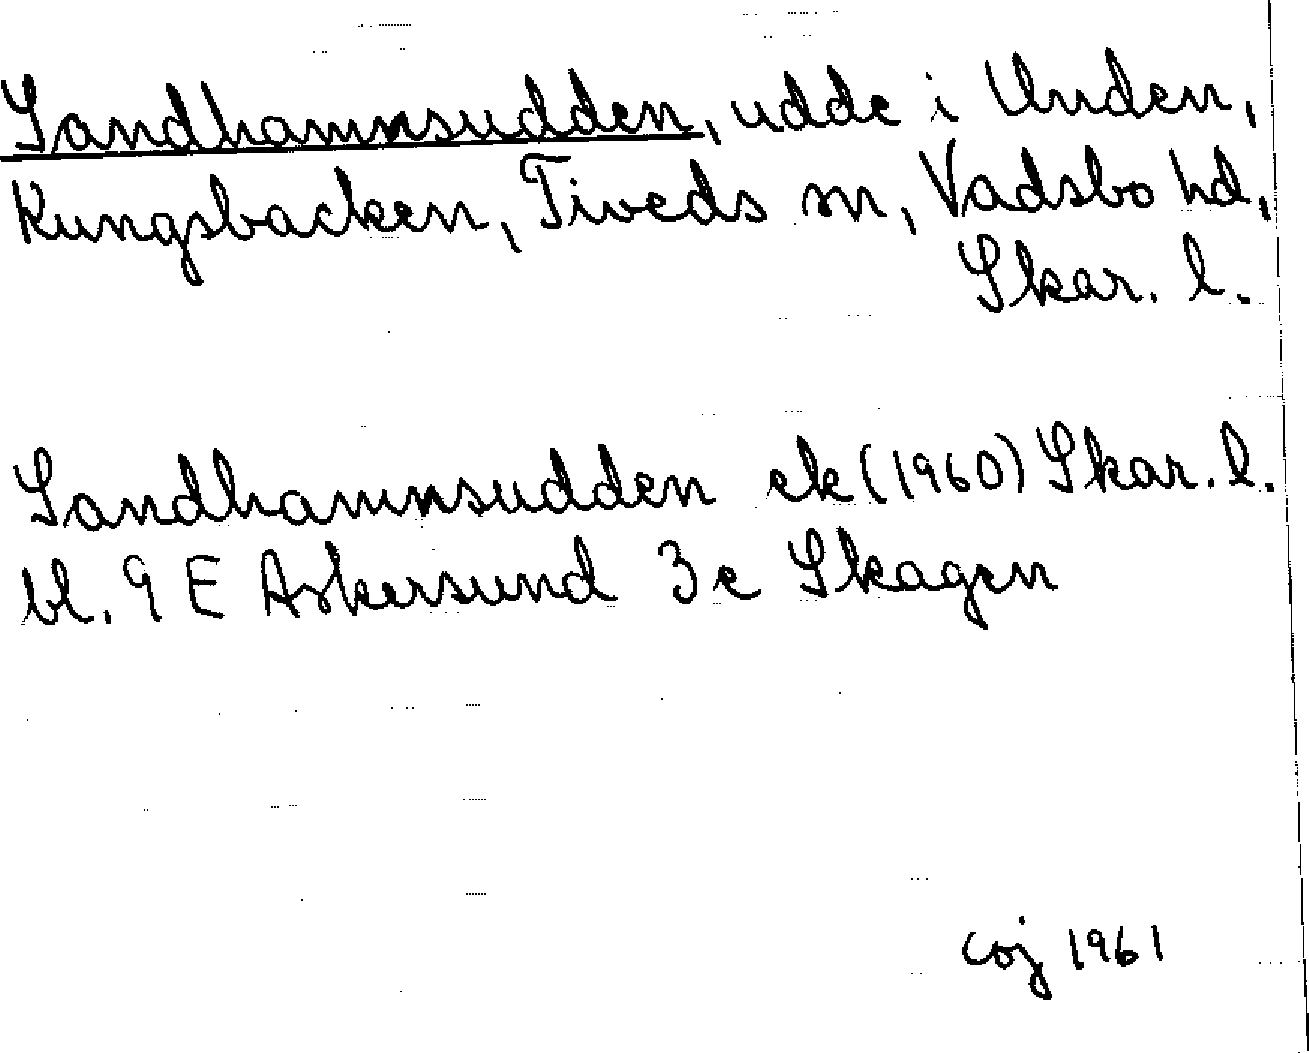 Sandhamnsudden, udde i Unden,
Kungsbacken, Tiveds sn, Vadsbo hd,
Skar. l.
Sandhamnsudden ek (1960) Skar. l.
bl. 9 E Askersund 3 e Skagen
coj 1961